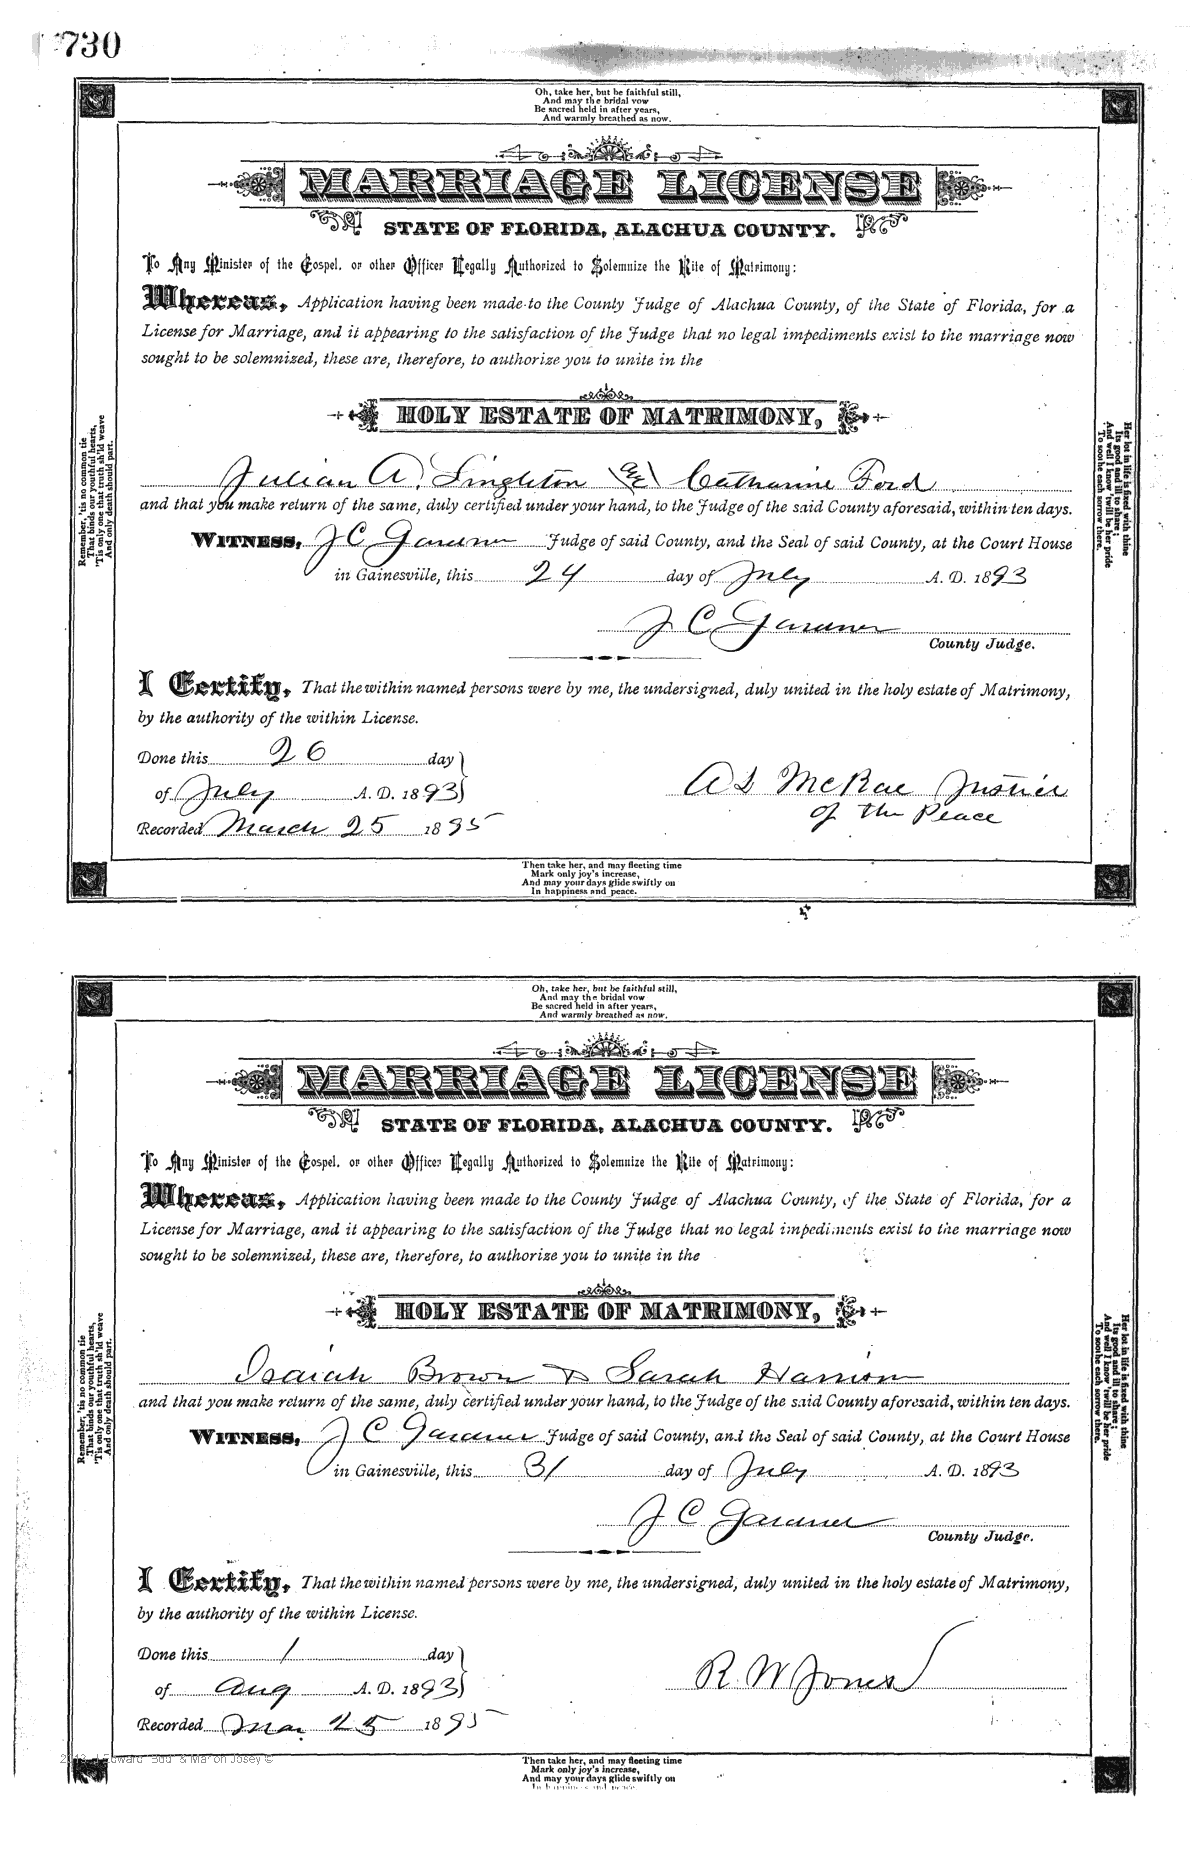 730
Oh, take her, but be faithful still,
And may the bridal vow
Be sacred held in after years,
And warmly breathed as now.
MARRIAGE LICENSE
STATE OF FLORIDA, ALACHUA COUNTY.
To Any Minister of the Gospel, or other Officer Legally Authorized to Solemnize the Rite of Matrimony:
Whereas, Application having been made to the County Judge of Alachua County, of the State of Florida, for a
License for Marriage, and it appearing to the satisfaction of the Judge that no legal impediments exist to the marriage now
sought to be solemnized, these are, therefore, to authorize you to unite in the
HOLY ESTATE OF MATRIMONY,
Julian A. Singleton & Catharine Ford
and that you make return of the same, duly certified under your hand, to the Judge of the said County aforesaid, within ten days.
WITNESS, J C Gardner Judge of said County, and the Seal of said County, at the Court House
in Gainesville, this 24 day of July A. D. 1893
J C Gardner
County Judge.
I Certify, That the within named persons were by me, the undersigned, duly united in the holy estate of Matrimony,
by the authority of the within License.
Done this 26 day
of July A. D. 1893
Recorded March 25 1895
A S McRae Justice
of the Peace
Remember, 'tis no common tie
That binds our youthful hearts,
'Tis only one that truth sh'ld weave
And only death should part.
Her lot in life is fixed with thine
Its good and ill to share;
And well I know 'twill be her pride
To soothe each sorrow there.
Then take her, and may fleeting time
Mark only joy's increase,
And may your days glide swiftly on
In happiness and peace.
Oh, take her, but be faithful still,
And may the bridal vow
Be sacred held in after years,
And warmly breathed as now.
MARRIAGE LICENSE
STATE OF FLORIDA, ALACHUA COUNTY.
To Any Minister of the Gospel, or other Officer Legally Authorized to Solemnize the Rite of Matrimony:
Whereas, Application having been made to the County Judge of Alachua County, of the State of Florida, for a
License for Marriage, and it appearing to the satisfaction of the Judge that no legal impediments exist to the marriage now
sought to be solemnized, these are, therefore, to authorize you to unite in the
HOLY ESTATE OF MATRIMONY,
Isaiah Brown & Sarah Harrison
and that you make return of the same, duly certified under your hand, to the Judge of the said County aforesaid, within ten days.
WITNESS, J C Gardner Judge of said County, and the Seal of said County, at the Court House
in Gainesville, this 31 day of July A. D. 1893
J C Gardner
County Judge.
I Certify, That the within named persons were by me, the undersigned, duly united in the holy estate of Matrimony,
by the authority of the within License.
Done this 1 day
of Aug A. D. 1893
Recorded Mar 25 1895
R. W Jones
Remember, 'tis no common tie
That binds our youthful hearts,
'Tis only one that truth sh'ld weave
And only death should part.
Her lot in life is fixed with thine
Its good and ill to share;
And well I know 'twill be her pride
To soothe each sorrow there.
Edward "Bud" & Marion Josey ©
Then take her, and may fleeting time
Mark only joy's increase,
And may your days glide swiftly on
In happiness and peace